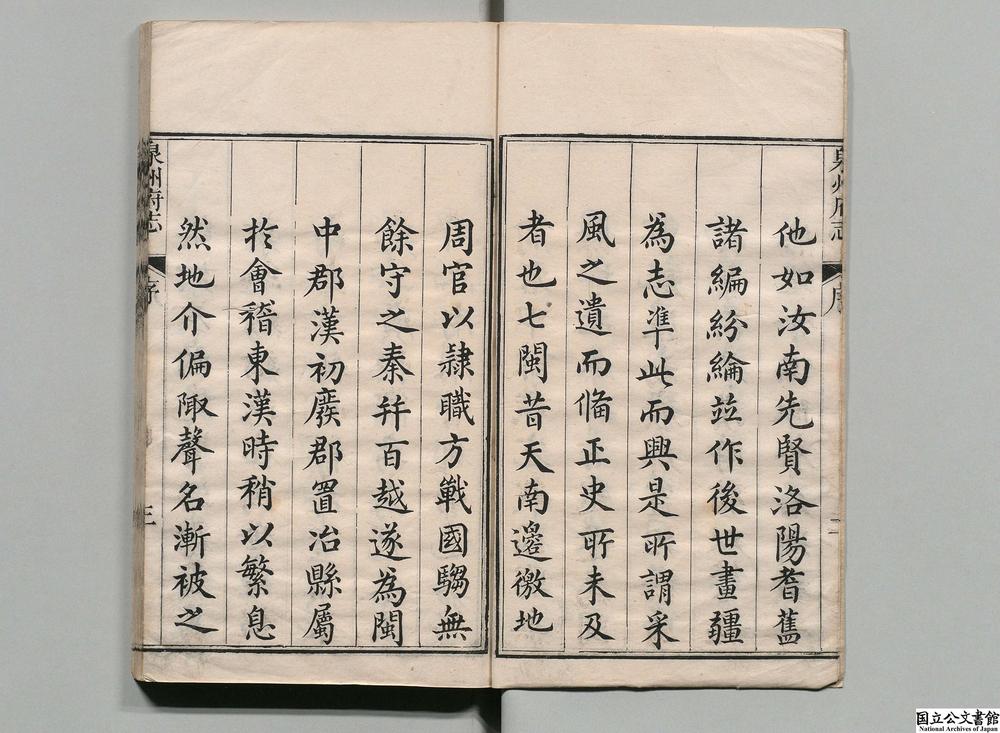 泉州府志
序
他如汝南先賢洛陽耆舊
諸編紛綸竝作後世畫疆
為志準此而興是所謂采
風之遺而俻正史所未及
者也七閩昔天南邊徼地
周官以隷職方戰國騶無
餘守之秦并百越遂為閩
中郡漢初廢郡置冶縣屬
於會稽東漢時稍以繁息
然地介偏陬聲名漸被之
泉州府志
序
三
国立公文書館
National Archives of Japan